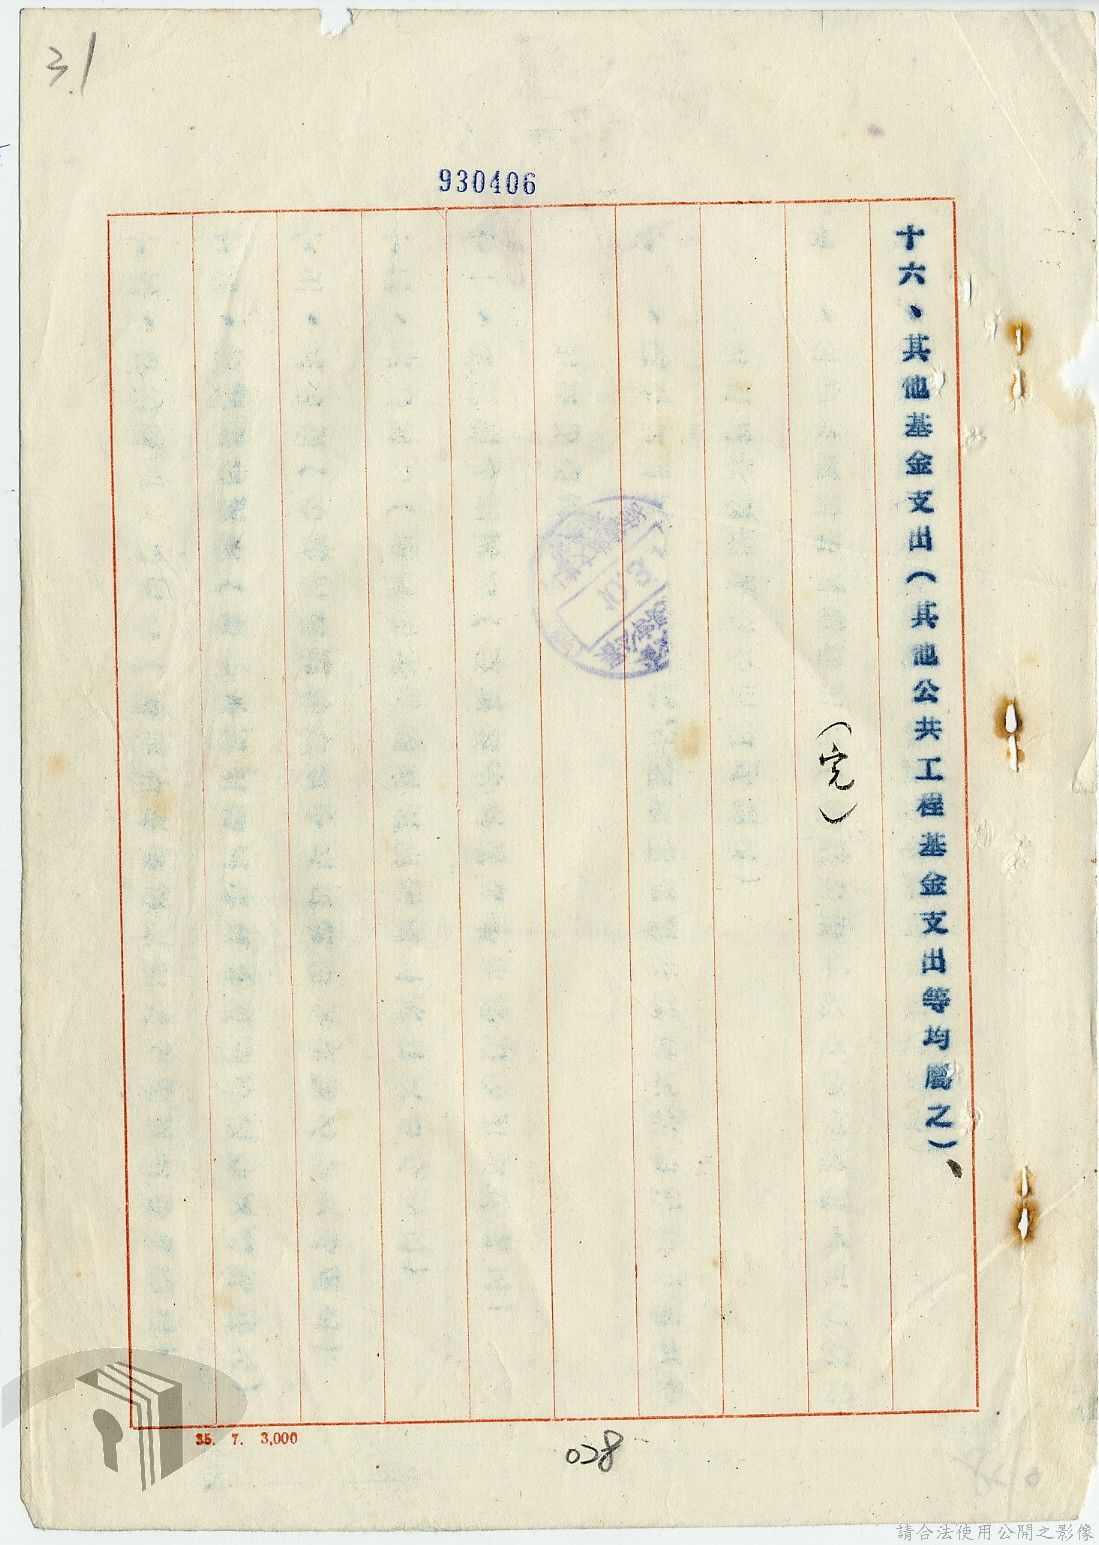 31
930406
十六、其他基金支出(其他公共工程基金支出等均屬之)、
(完)
35. 7. 3,000
028
請合法使用公開之影像